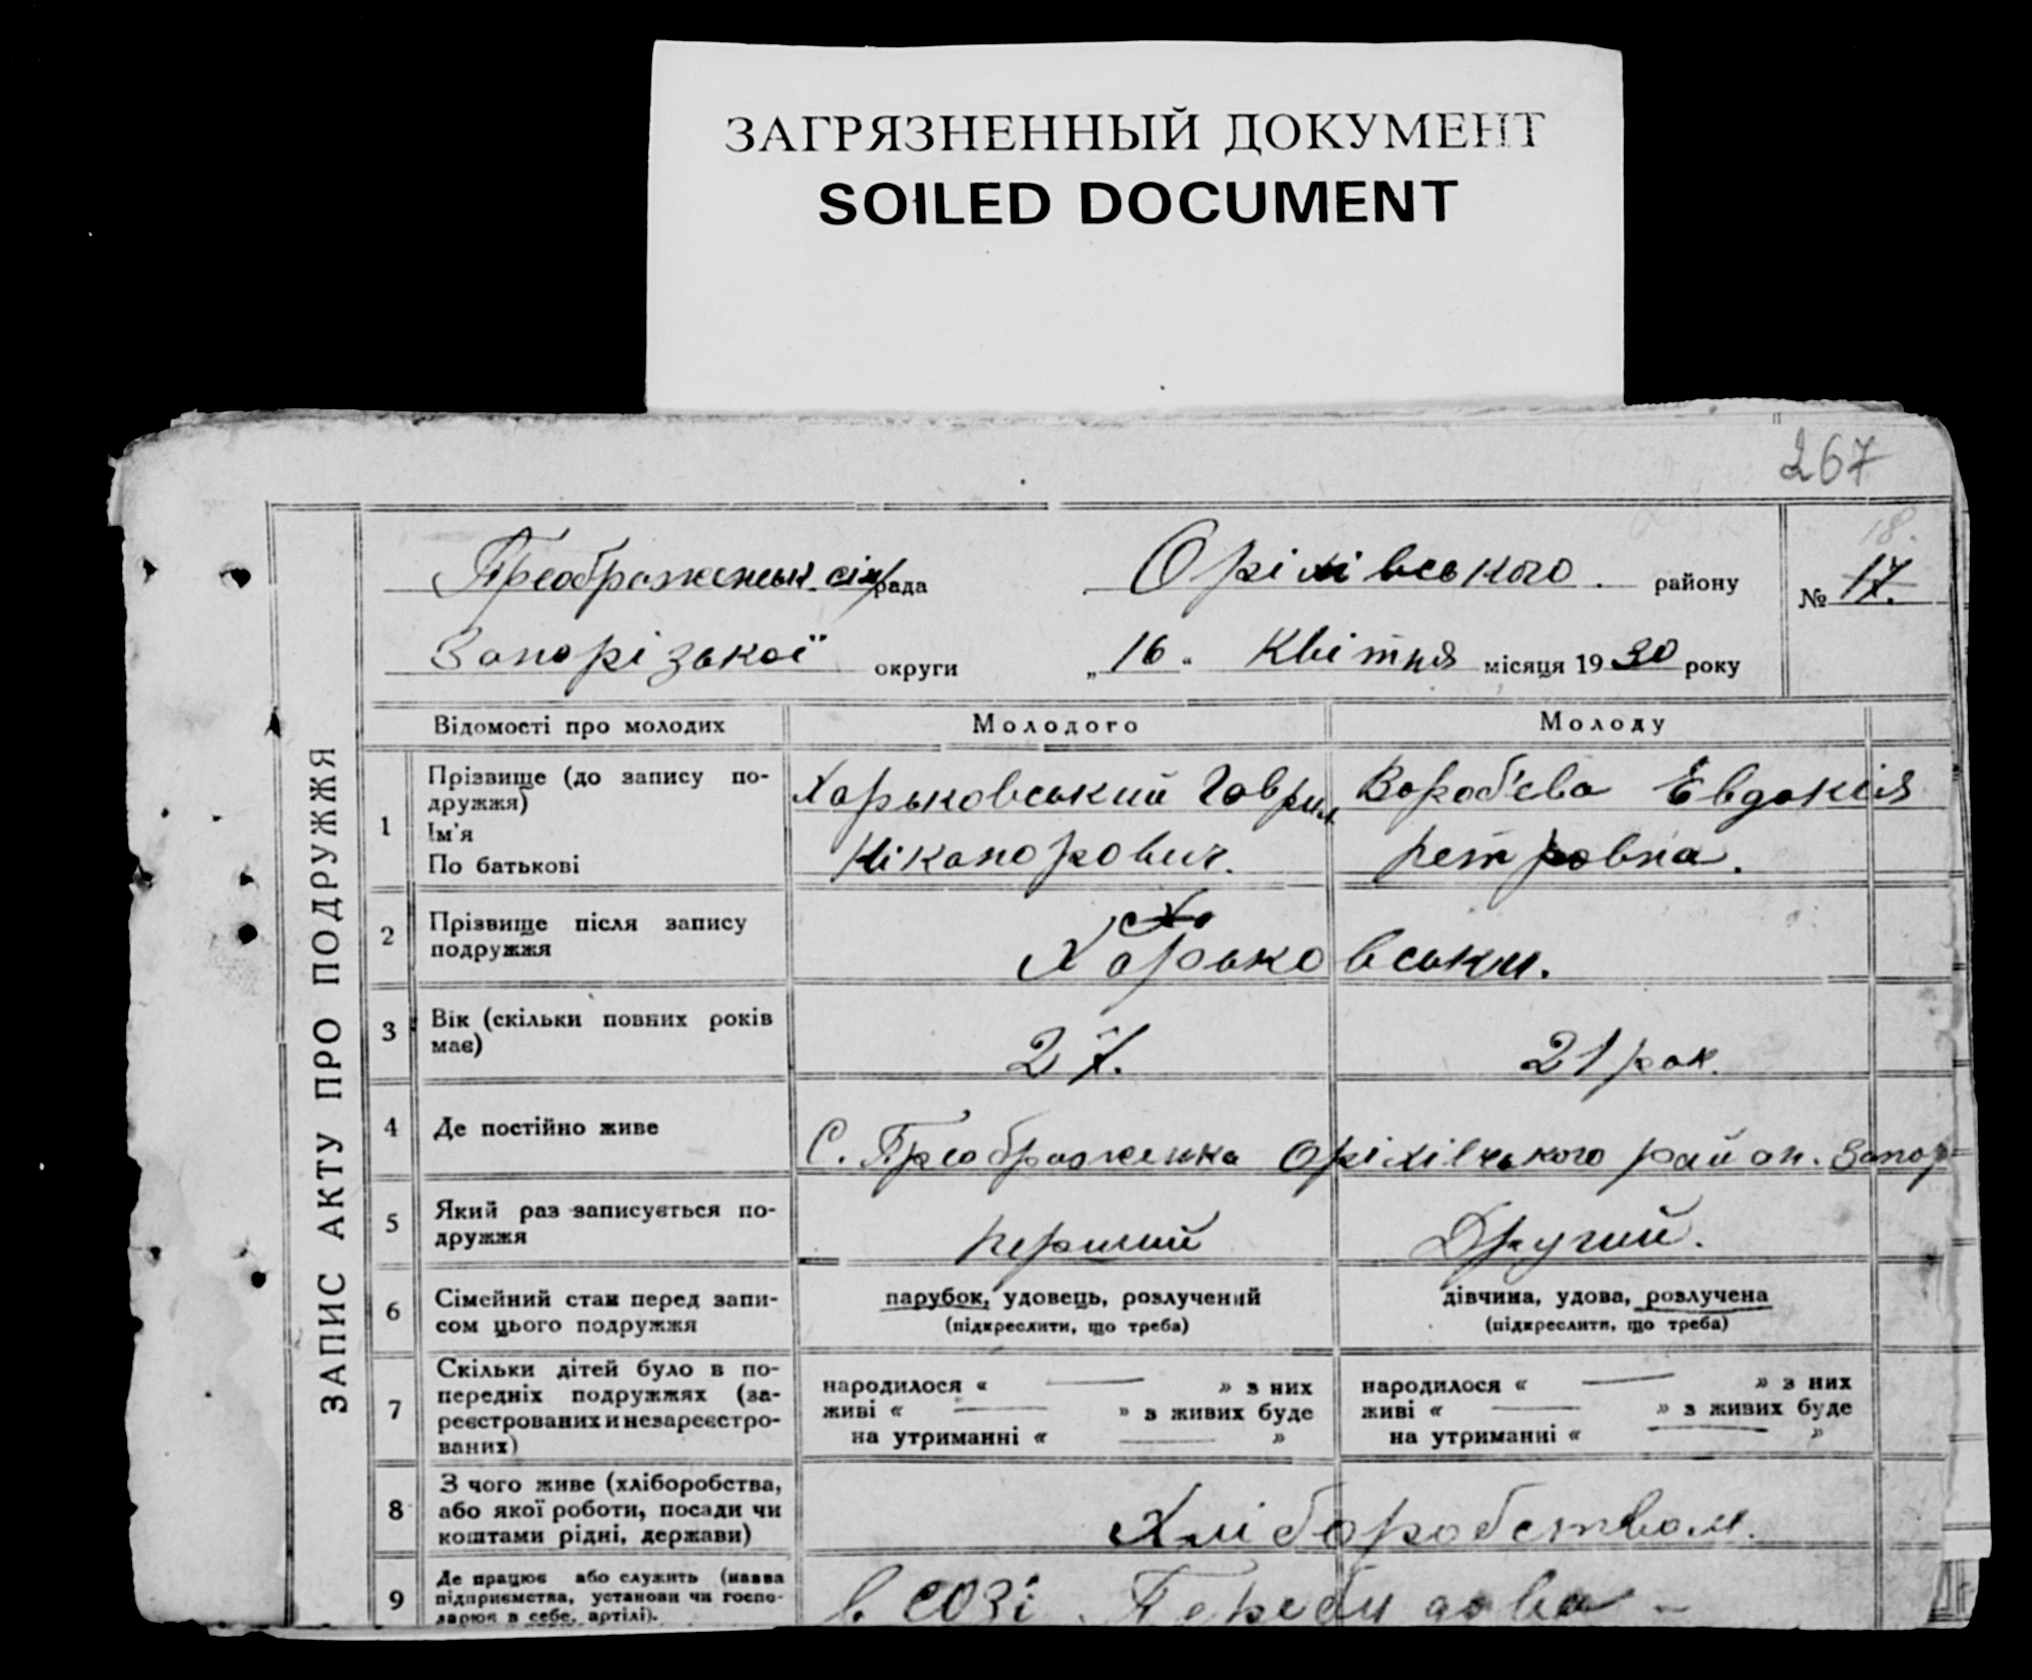 ЗАГРЯЗНЕННЫЙ ДОКУМЕНТ
SOILED DOCUMENT
267
18.
Преображенськ. сіль рада Оріхівського. району № 17.
Запорізької округи „16" Квітня місяця 1930 року
ЗАПИС АКТУ ПРО ПОДРУЖЖЯ
Відомості про молодих Молодого Молоду
1 Прізвище (до запису по-
дружжя)
Ім'я
По батькові
Харьковський Гаврил
Ніканорович.
Вороб'єва Евдокія
Петровна.
2 Прізвище після запису
подружжя
Ха
Харьковськи.
3 Вік (скільки повних років
має)
27. 21 рок.
4 Де постійно живе С. Преображенка Оріхівського район. Запор
5 Який раз записується по-
дружжя
перший Другий.
6 Сімейний стан перед запи-
сом цього подружжя
парубок, удовець, розлучений
(підкреслити, що треба)
дівчина, удова, розлучена
(підкреслити, що треба)
7 Скільки дітей було в по-
передніх подружжях (за-
реєстрованих и незареєстро-
ваних)
народилося « — » з них
живі « — » з живих буде
на утриманні « — »
народилося « — » з них
живі « — » з живих буде
на утриманні « — »
8 З чого живе (хліборобства,
або якої роботи, посади чи
коштами рідні, держави)
Хліборобством.
9 Де працює або служить (назва
підприємства, установи чи госпо-
дарює в себе, артілі).
в СОЗі